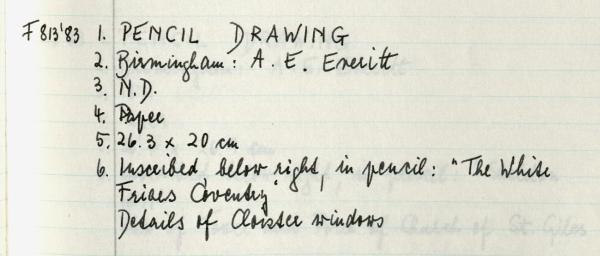 F 813'83 1. PENCIL DRAWING
2. Birmingham: A. E. Everitt
3. N.D.
4. Paper
5. 26.3 x 20 cm
6. Inscribed below right, in pencil: "The White
Friars Coventry"
Details of Cloister windows